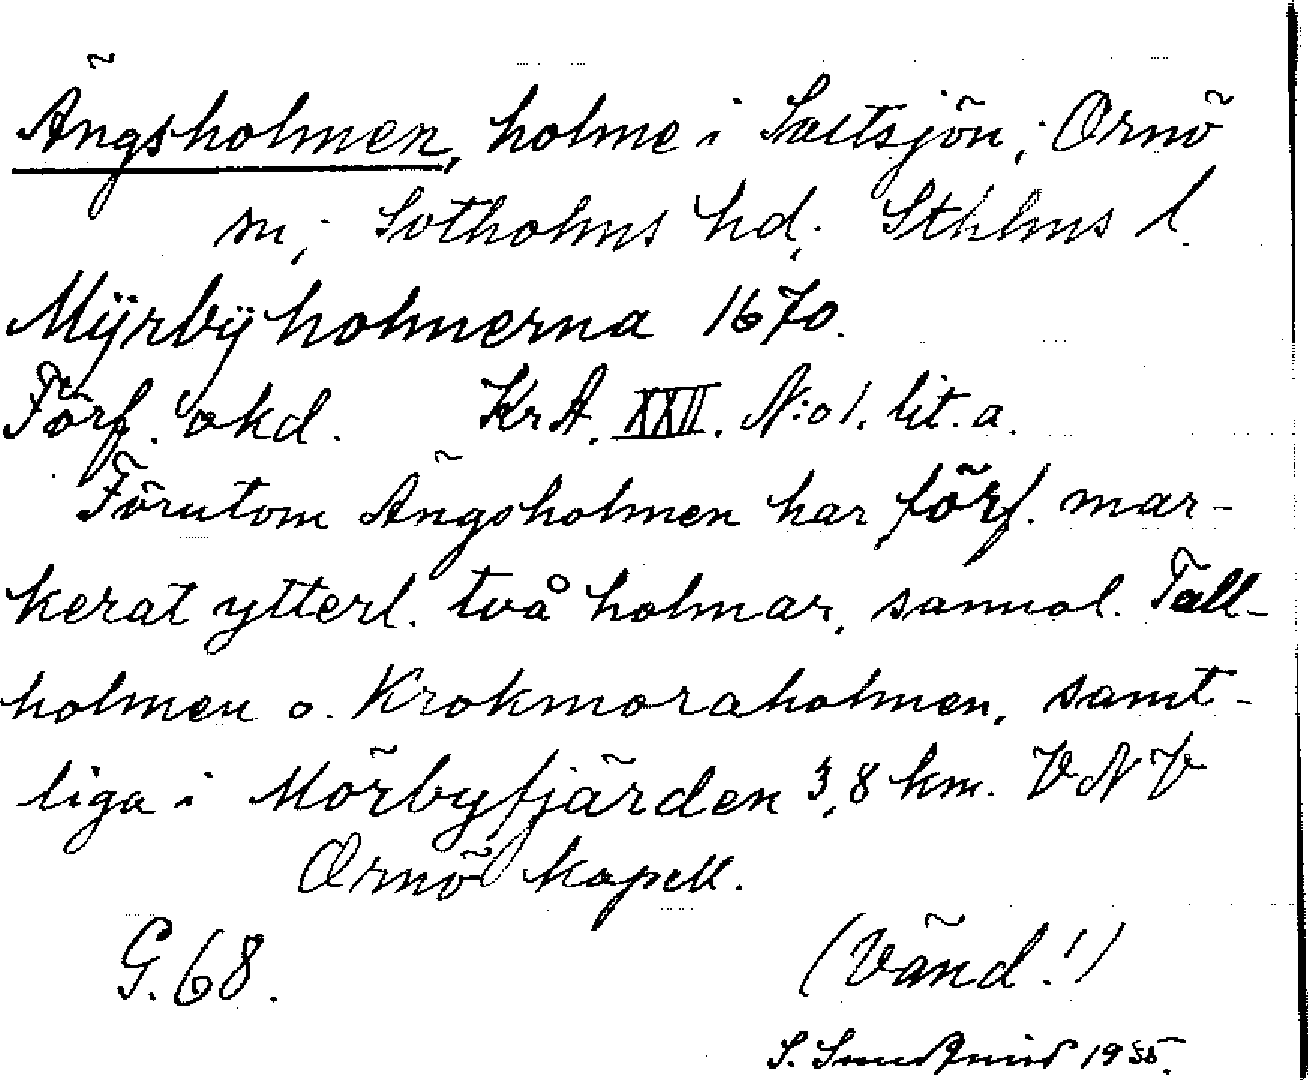 Ängsholmen, holme i Saltsjön; Ornö
sn; Sotholms hd; Sthlms l.
Mÿrbÿholmerna 1670.
Förf. okd. KrA. XXII. N:o 1. lit. a.
Förutom Ängsholmen har förf. mar-
kerat ytterl. två holmar, sannol. Tall-
holmen o. Krokmoraholmen, samt-
liga i Mörbyfjärden 3,8 km. VNV
Ornö kapell.
G. 68.
(Vänd!)
S. 1955.